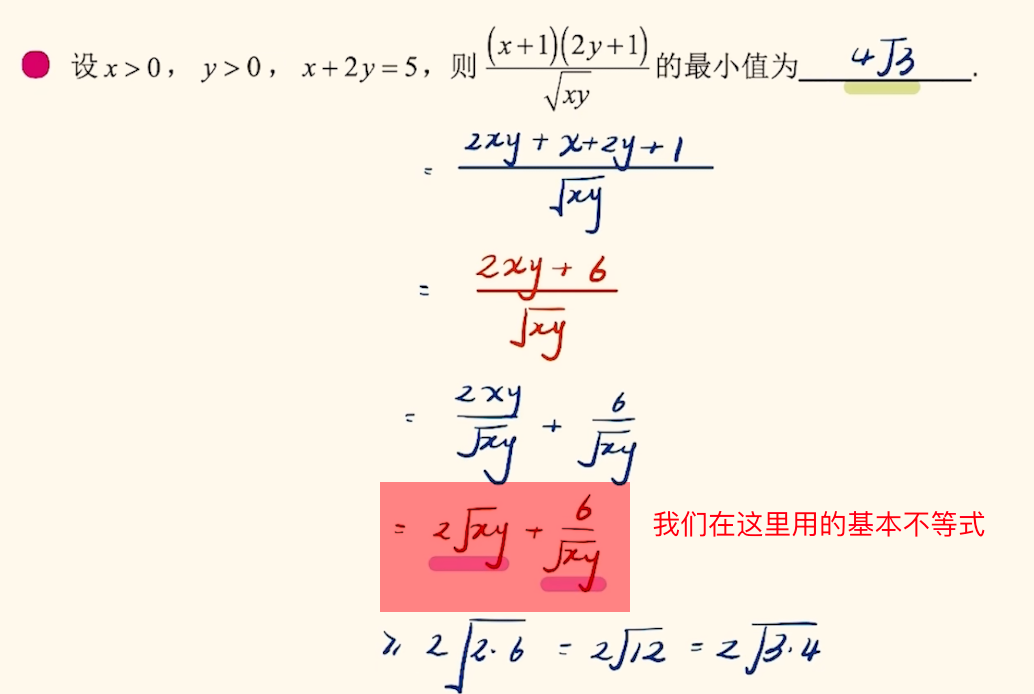 设 x > 0， y > 0， x + 2y = 5，则 (x+1)(2y+1)/√xy 的最小值为 4√3 .
= (2xy + x + 2y + 1)/√xy
= (2xy + 6)/√xy
= 2xy/√xy + 6/√xy
= 2√xy + 6/√xy 我们在这里用的基本不等式
⩾ 2√2·6 = 2√12 = 2√3·4